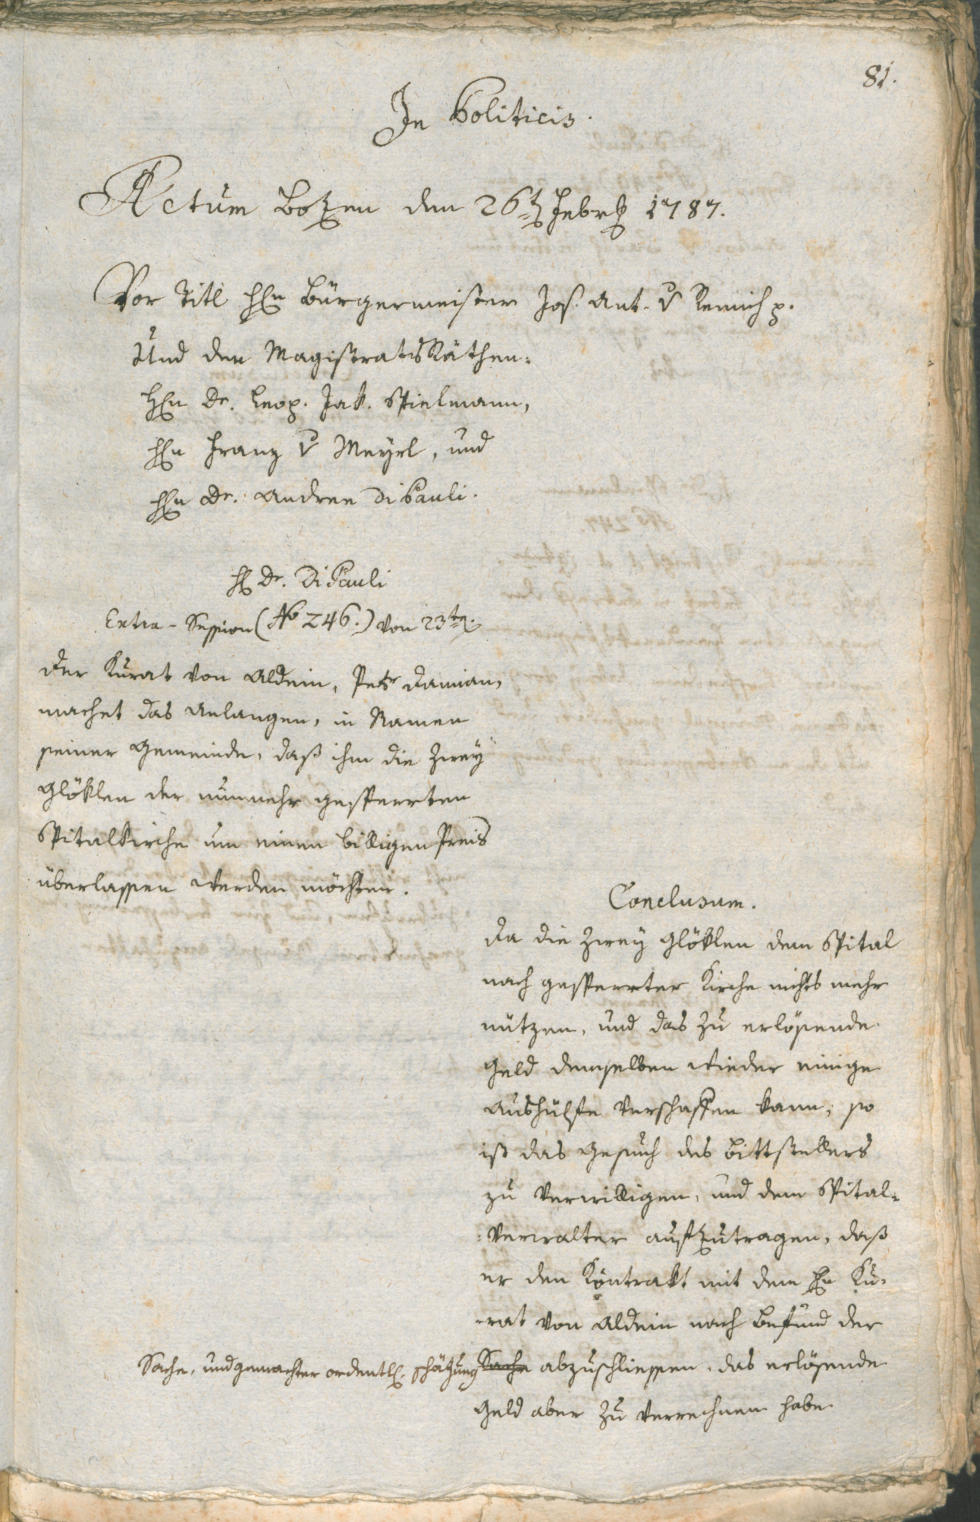 81.
In Politicis.
Actum Botzen den 26t Febr 1787.
Vor Titl Hn Bürgermeister Jos. Ant. v Remich p.
Und den Magistrats Räthen.
Hn Dr. Leop. Jak. Spielmann,
Hn Franz v Mayrl, und
Hn Dr. Andree Di Pauli.
H Dr. Di Pauli
Extra-Session (No 246.) von 23ten.
Der Kurat von Aldein, Peter Damian,
machet das Anlangen, in Namen
seiner Gemeinde, daß ihm die zwey
Glöklen der nunmehr gesperrten
Spitalkirche um einen billigen Preis
überlassen werden möchten.
Conclusum.
Da die zwey Glöklen dem Spital
nach gesperrter Kirche nichts mehr
nützen, und das zu erlösende
Geld demselben wieder einige
Aushülfe verschaffen kann, so
ist das Gesuch des Bittstellers
zu verwilligen, und dem Spital-
verwalter aufzutragen, daß
er den Kontrakt mit dem Hn Ku-
rat von Aldein nach Befund der
Sache, und gemachter ordentl. Schätzung Sache abzuschliessen, das erlösende
Geld aber zu verrechnen habe.